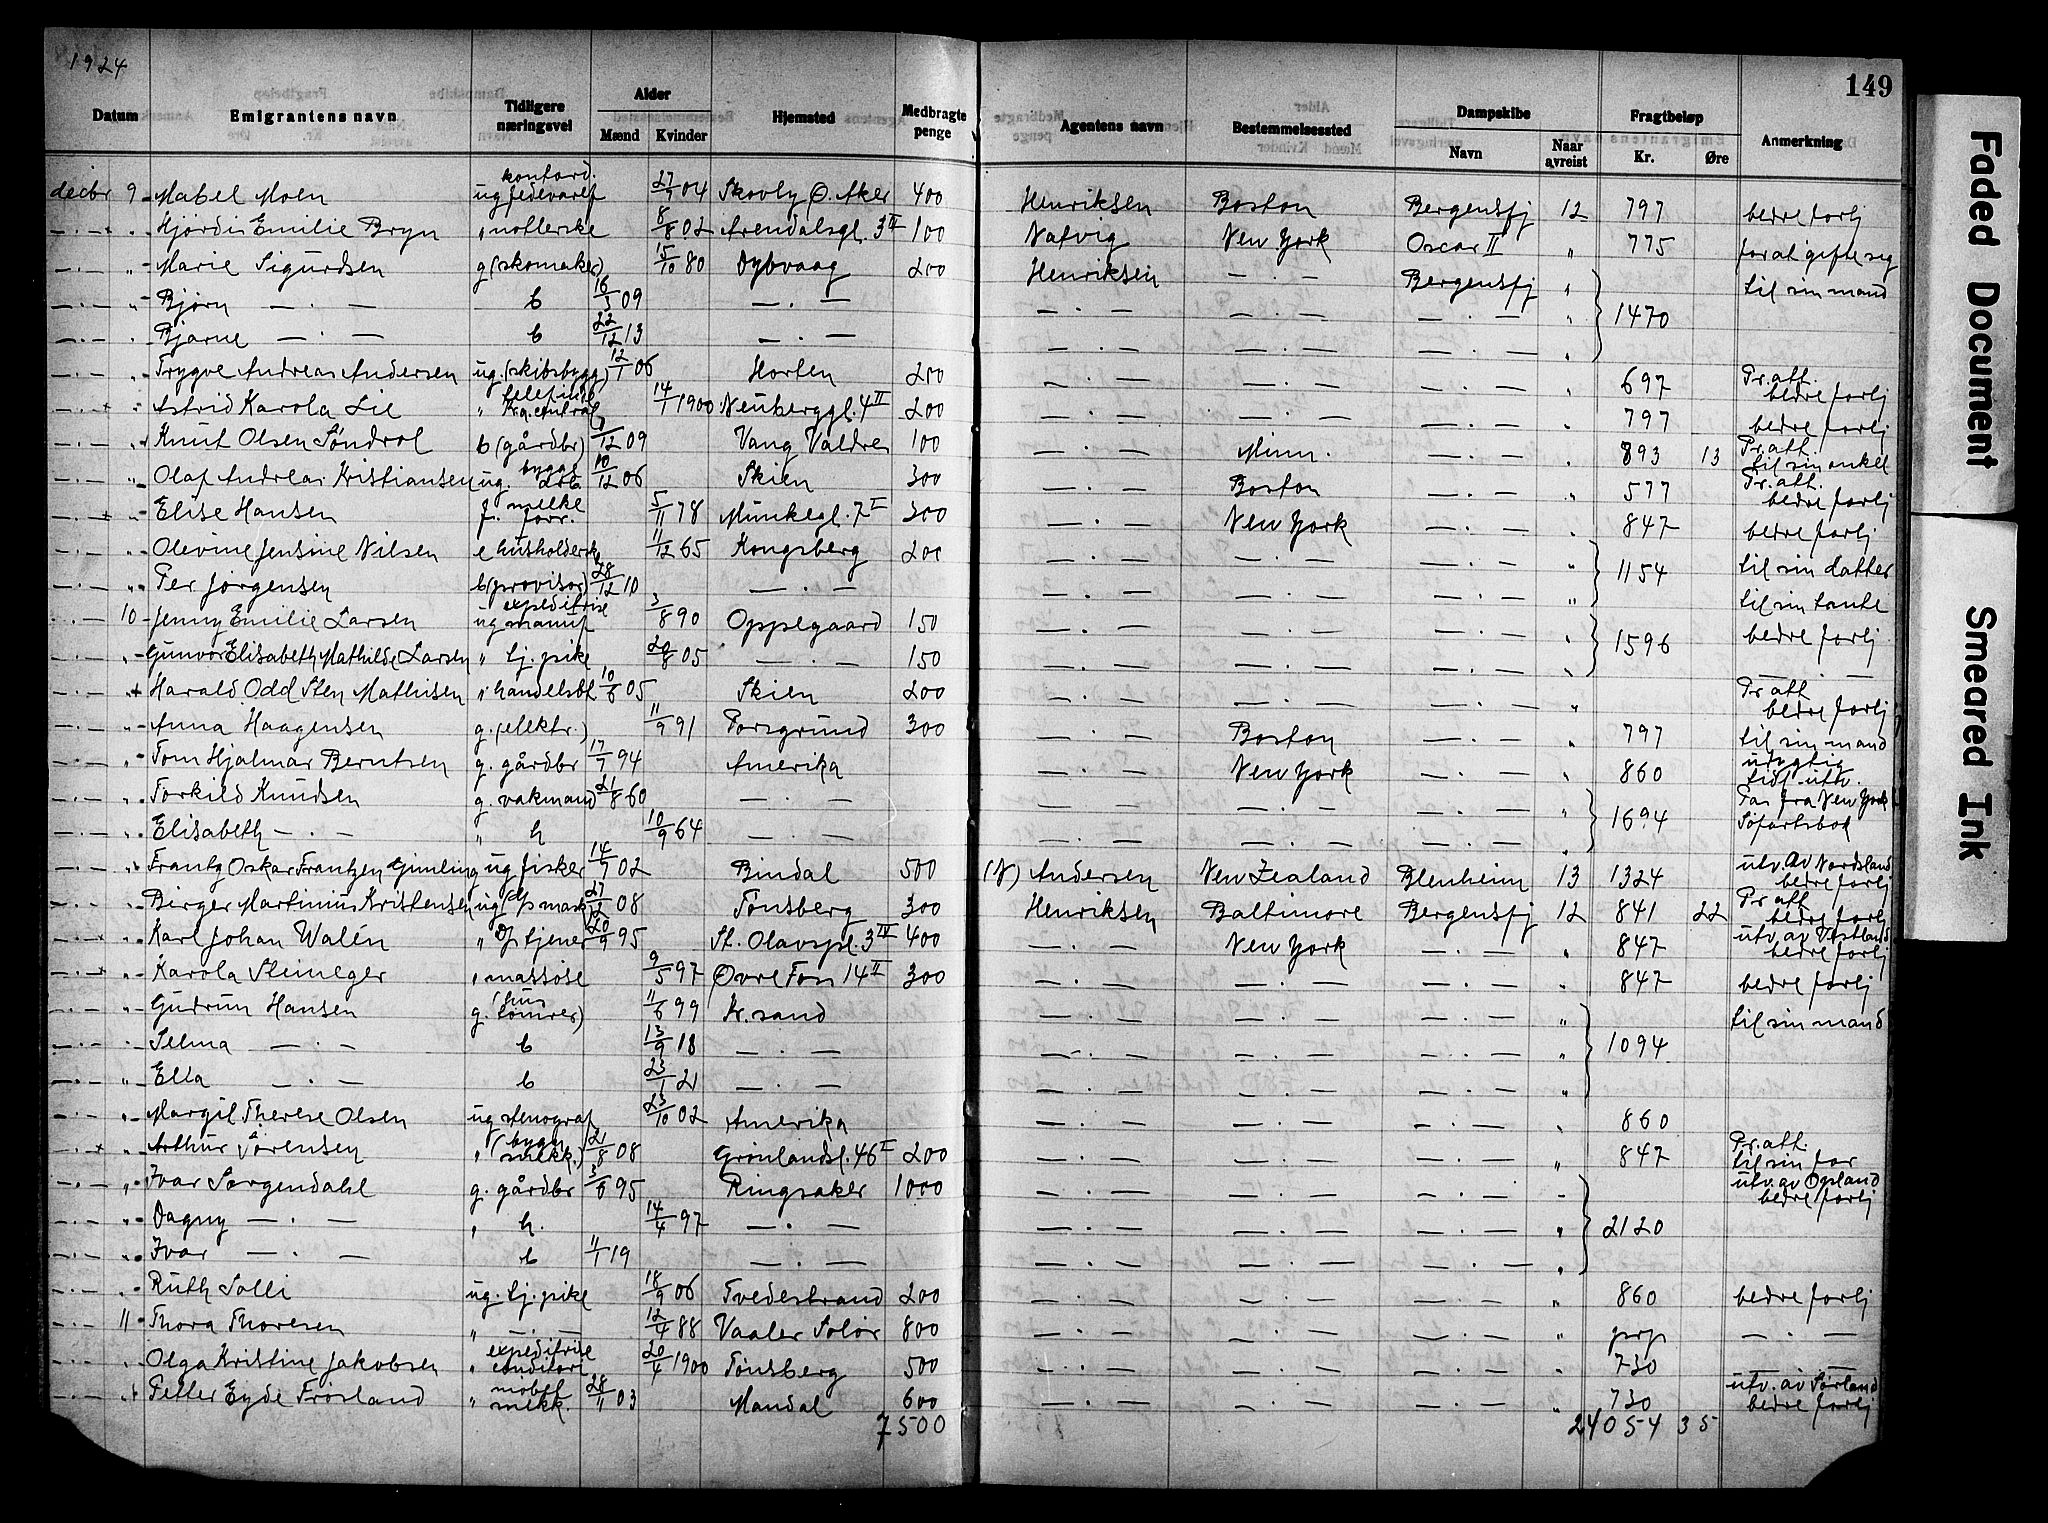 1924
149
Datum Emigrantens navn Tidligere næringsvei Alder Mænd Kvinder Hjemsted Medbragte penge Agentens navn Bestemmelsessted Dampskibe Navn Naar avreist Fragtbeløp Kr. Øre Anmerkning
decbr 9 Mabel Moen ug 27/7 04 Skovly Ø. Aker 400 Henriksen Boston Bergensfj 12 797 bedre forlj
— . — " Hjørdis Emilie Bryn " 8/8 02 Arendalsgt. 3 II 100 Natvig New York Oscar II " 775 for at gifte sig
— . — " Marie Sigurdsen g (skomaker) 15/10 80 Dybvaag 200 Henriksen — . — Bergensfj " til sin mand
— . — " Bjørn — . — b 16/3 09 — . — — . — — . — — . — " 1470
— . — " Bjarne — . — b 22/12 13 — . — — . — — . — — . — "
— . — " Trygve Andreas Andersen ug. (skibsbygg) 12/1 06 Horten 200 — . — — . — — . — " 697 Pr. att. bedre forlj
— . — " Astrid Karola Lie " 14/1 1900 Neuberggt. 4 II 200 — . — — . — — . — " 797 bedre forlj
— . — " Knut Olsen Søndrol b (gårdbr) /12 09 Vang Valdres 100 — . — Minn. — . — " 893 13 Pr. att. til sin onkel
— . — " Olaf Andreas Kristiansen ug. bygge arb. 10/12 06 Skien 300 — . — Boston — . — " 577 Pr. att. bedre forlj
— . — " Elise Hansen f. melke forr. 5/11 78 Munkegt. 7 I 300 — . — New York — . — " 847 bedre forlj
— . — " Olevine Jensine Nilsen e husholdersk 11/12 65 Kongsberg 200 — . — — . — — . — " 1154 til sin datter
— . — " Per Jørgensen b (provisor) 28/12 10 — . — — . — — . — — . — " til sin tante
— . — 10 Jenny Emilie Larsen ug expeditrise manuf 3/8 90 Oppegaard 150 — . — — . — — . — " 1596 bedre forlj
— . — " Gunvor Elisabeth Mathilde Larsen " tj. pike 20/8 05 — . — 150 — . — — . — — . — " — . —
— . — " Harald Odd Sten Mathisen " handelsbt 10/6 05 Skien 200 — . — — . — — . — " Pr att bedre forlj
— . — " Anna Haagensen g. (elektr.) 11/9 91 Porsgrund 300 — . — Boston — . — " 797 til sin mand
— . — " Tom Hjalmar Berntsen g. gårdbr 17/7 94 Amerika — . — New York — . — " 860 utv.
— . — " Torkild Knudsen g. vakmand 21/8 60 — . — — . — — . — — . — " 1694 Pas fra New York
— . — " Elisabeth — . — " h 10/9 64 — . — — . — — . — — . — "
— . — " Frantz Oskar Frantzen Gimling ug fisker 14/7 02 Bindal 500 (N) Andersen New Zealand Blenheim 13 1324 utv. av Nordland bedre forlj
— . — " Birger Martinius Kristensen ug 27/12 08 Tønsberg 300 Henriksen Baltimore Bergensfj 12 841 22 Pr att bedre forlj
— . — " Karl Johan Walén " tjener 20/9 95 St. Olavspl. 3 IV 400 — . — New York — . — " 847 utv. av Østland bedre forlj
— . — " Karola Steineger " massøse 9/5 97 Øvre Foss 14 II 300 — . — — . — — . — " 847 bedre forlj
— . — " Gudrun Hansen g. (hus tømrer) 11/6 99 Kr.sand — . — — . — — . — " til sin mand
— . — " Selma — . — b 13/9 18 — . — — . — — . — — . — " 1094
— . — " Ella — . — b 23/1 21 — . — — . — — . — — . — "
— . — " Margit Therese Olsen ug stenograf 23/10 02 Amerika — . — — . — — . — " 860
— . — " Arthur Sørensen " (bygn smekk.) 21/8 08 Grønlandsl. 46 I 200 — . — — . — — . — " 847 Pr. att. til sin far
— . — " Ivar Sørgendahl g. gårdbr 3/6 95 Ringsaker 1000 — . — — . — — . — " utv. av Opland bedre forlj
— . — " Dagny — . — " h. 14/4 97 — . — — . — — . — — . — " 2120
— . — " Ivar — . — b 11/1 19 — . — — . — — . — — . — "
— . — " Ruth Solli ug. tj. pike 18/9 06 Tvedestrand 200 — . — — . — — . — " 860 bedre forlj
— . — 11 Thora Thoresen " — . — 12/4 88 Vaaler Solør 800 — . — — . — — . — " prp — . —
— . — " Olga Kristine Jakobsen " expeditrise conditori 20/4 1900 Tønsberg 500 — . — — . — — . — " 730
— . — " Petter Eyde Frøsland " smekk. 28/11 03 Mandal 600 — . — — . — — . — " 730 utv. av Sørland bedre forlj
7500 24054 35
Faded Document
Smeared Ink